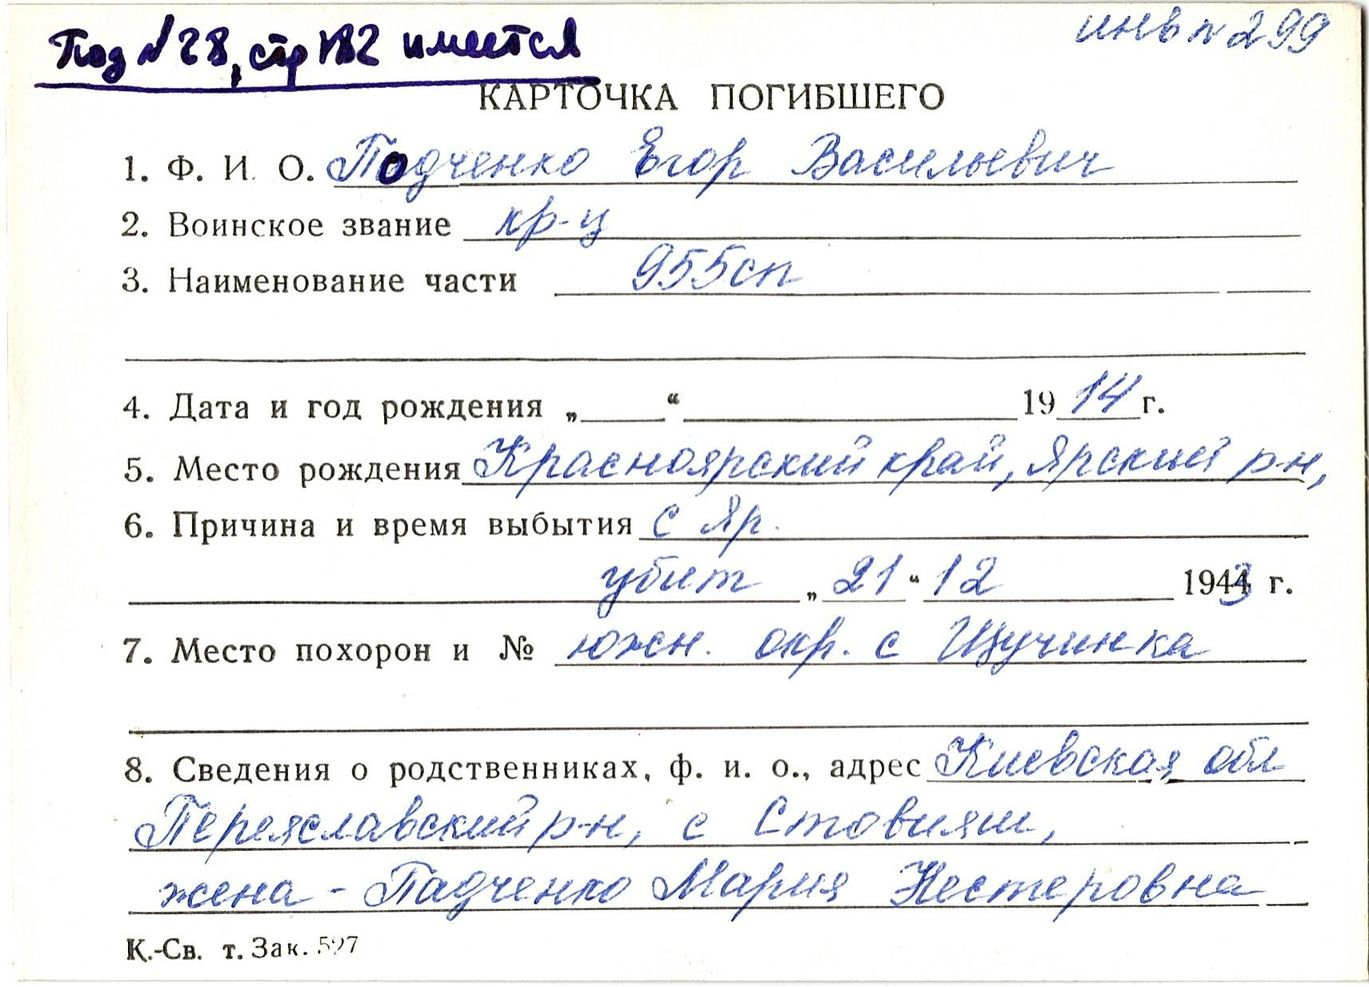 Под №28, стр 182 имеется
инв № 299
КАРТОЧКА ПОГИБШЕГО
1. Ф. И. О. Подченко Егор Васильевич
2. Воинское звание кр-ц
3. Наименование части 955сп
4. Дата и год рождения „ “ 19 14 г.
5. Место рождения Красноярский край, Ярский р-н,
6. Причина и время выбытия с Яр.
убит „ 21 “ 12 1943 г.
7. Место похорон и № южн. окр. с Щучинка
8. Сведения о родственниках, ф. и. о., адрес Киевская обл
Переяславский р-н, с Стовпяги,
жена - Падченко Мария Нестеровна
К.-Св. т. Зак. 597